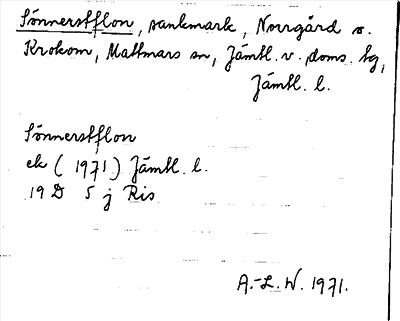 Sönnerstflon, sankmark, Norrgård o.
Krokom, Mattmars sn, Jämtl. v. doms. hg,
Jämtl. l.
Sönnerstflon
ek (1971) Jämtl. l.
19 D 5 j Ris
A.-L. W. 1971.